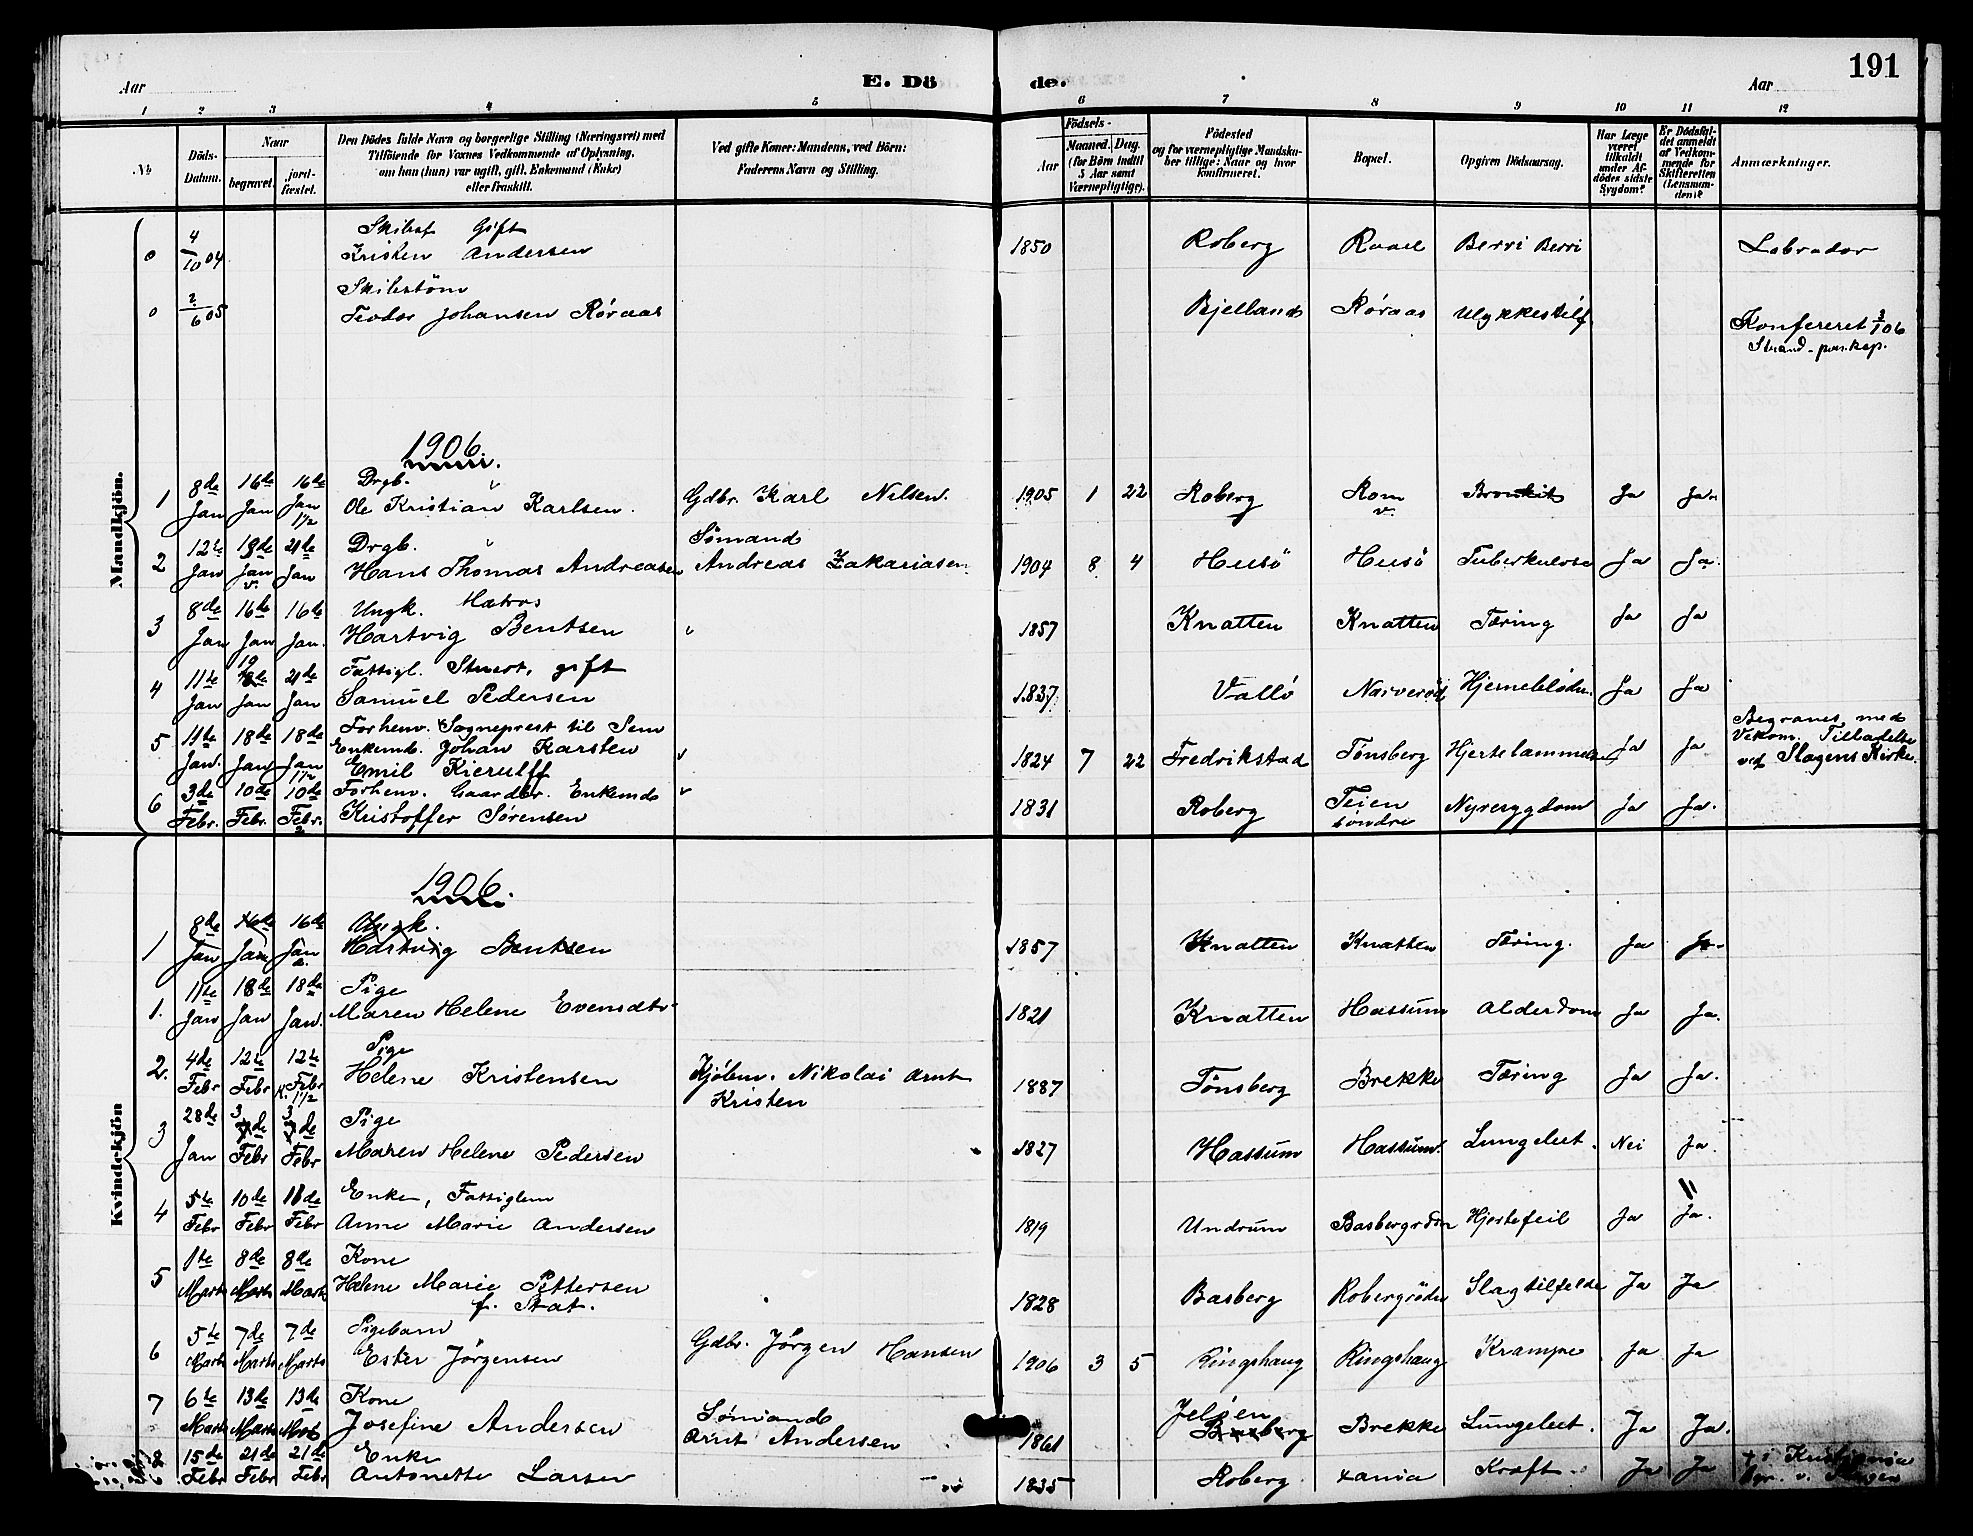 191
Aar E. Dö de. Aar
1 2 3 4 5 6 7 8 9 10 11 12
No Döds-Datum. Naar begravet. jordfæstet. Den Dödes fulde Navn og borgerlige Stilling (Næringsvei) med Tilföiende for Voxnes Vedkommende af Oplysning, om han (hun) var ugift, gift, Enkemand (Enke) eller fraskilt. Ved gifte Koner: Mandens, ved Börn: Faderens Navn og Stilling. Födsels- Aar Maaned. Dag. (for Börn indtil 5 Aar samt Værnepligtige). Födested og for værnepligtige Mandskaber tillige: Naar og hvor konfirmeret. Bopæl. Opgiven Dödsaarsag. Har Læge været tilkaldt under Afdödes sidste Sygdom? Er Dödsfaldet anmeldt af Vedkommende for Skifteretten (Lensmanden)? Anmærkninger.
Mandkjön.
0 4/10 04 Skibsf Gift
Kristen Andersen 1850 Roberg Raael Berri Berri Labrador
0 2/6 05 Skibstöm
Teodor Johansen Röraas Bjelland Röraas Ulykkestilf
Konfereret 3/1 06
Strand
1906
1 8de Jan 16de Jan 16de Jan 1½ Drgb.
Ole Kristian Karlsen. Gdbr. Karl Nilsen. 1905 1 22 Roberg Rom v. Bronkit Ja Ja.
2 12te Jan 18de Jan 21de Jan Drgb. Sömand
Hans Thomas Andreasen Andreas Zakariasen 1904 8 4 Husö Husö Tuberkulose Ja Ja.
3 8de Jan 16de Jan 16de Jan. Ungk. Matros
Hartvig Bentsen 1857 Knatten Knatten Tæring Ja Ja
4 11te Jan 19 18de Jan 21de Jan Fattigl. Stuert, gift
Samuel Pedersen 1837 Vallö Narveröd Hjerneblödn. Ja Ja
5 11te Jan. 18de Jan 18de Jan 1½ Forhenv. Sogneprest til Sem
Enkemd. Johan Karsten
Emil Kierulff 1824 7 22 Fredrikstad Tönsberg Hjertelammelse Ja Ja Begraves med
Vekom. Tilladelse
ved Slagens Kirke.
6 3de Febr. 10de Febr. 10de Febr. 2 Forhenv. Gaardbr. Enkemd
Kristoffer Sörensen 1831 Roberg Teien söndre Nyresygdom Ja Ja.
Kvindekjön
1906.
1 8de Jan 16de Jan 16de Jan Ungk.
Hartvig Bentsen 1857 Knatten Knatten Tæring. Ja Ja.
1. 11te Jan 18de Jan 18de Jan. Pige
Maren Helene Evensdtr 1821 Knatten Hassum Alderdom Ja Ja.
2. 4de Febr 12te Febr 12te Febr K. 1½ Pige
Helene Kristensen Kjöbm. Nikolai Arnt
Kristen 1887 Tönsberg Brekke Tæring Ja Ja.
3 28de Jan 3 de Febr 3 de Febr Pige
Maren Helene Pedersen 1827 Hassum Hassum. Lungebet. Nei Ja.
4 5te Febr 10de Febr 18de Febr Enke, Fattiglem
Anne Marie Andersen 1819 Undrum Basbergrdn Hjertefeil Ja Ja.
5 1te Marts 8de Marts 8de Marts Kone
Helene Marie Pettersen
f. Stat. 1828 Basberg Robergröds Slagtilfelde Ja Ja
6 5te Marts 7de Marts 7de Marts Pigebarn
Ester Jörgensen Gdbr. Jörgen Hansen 1906 3 5 Ringshaug Ringshaug Krampe Ja Ja
7 6te Marts 13de Marts 13de Marts Kone
Josefine Andersen Sömand
Arnt Andersen 1861 Jelsen
Basberg Brekke Lungebet. Ja Ja.
8 15de Febr 21de Febr 21de Febr Enke
Antonette Larsen 1835 Roberg xania Kræft Ja Ja + i Kristiania
Bgr. v. Slagen